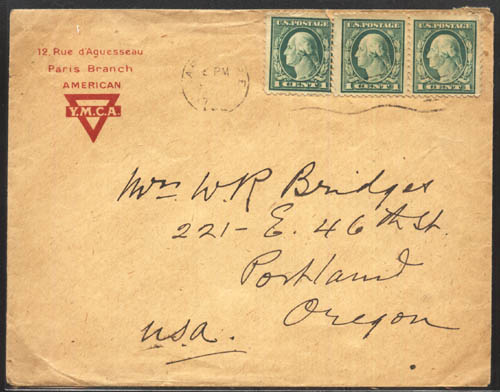 12, Rue d'Aguesseau
Paris Branch
AMERICAN
Y.M.C.A.
2 PM
U.S. POSTAGE
1 CENT 1
U.S. POSTAGE
1 CENT 1
U.S. POSTAGE
1 CENT 1
Mrs W.R Bridges
221- E. 46th St.
Portland
Oregon
U.S.A.